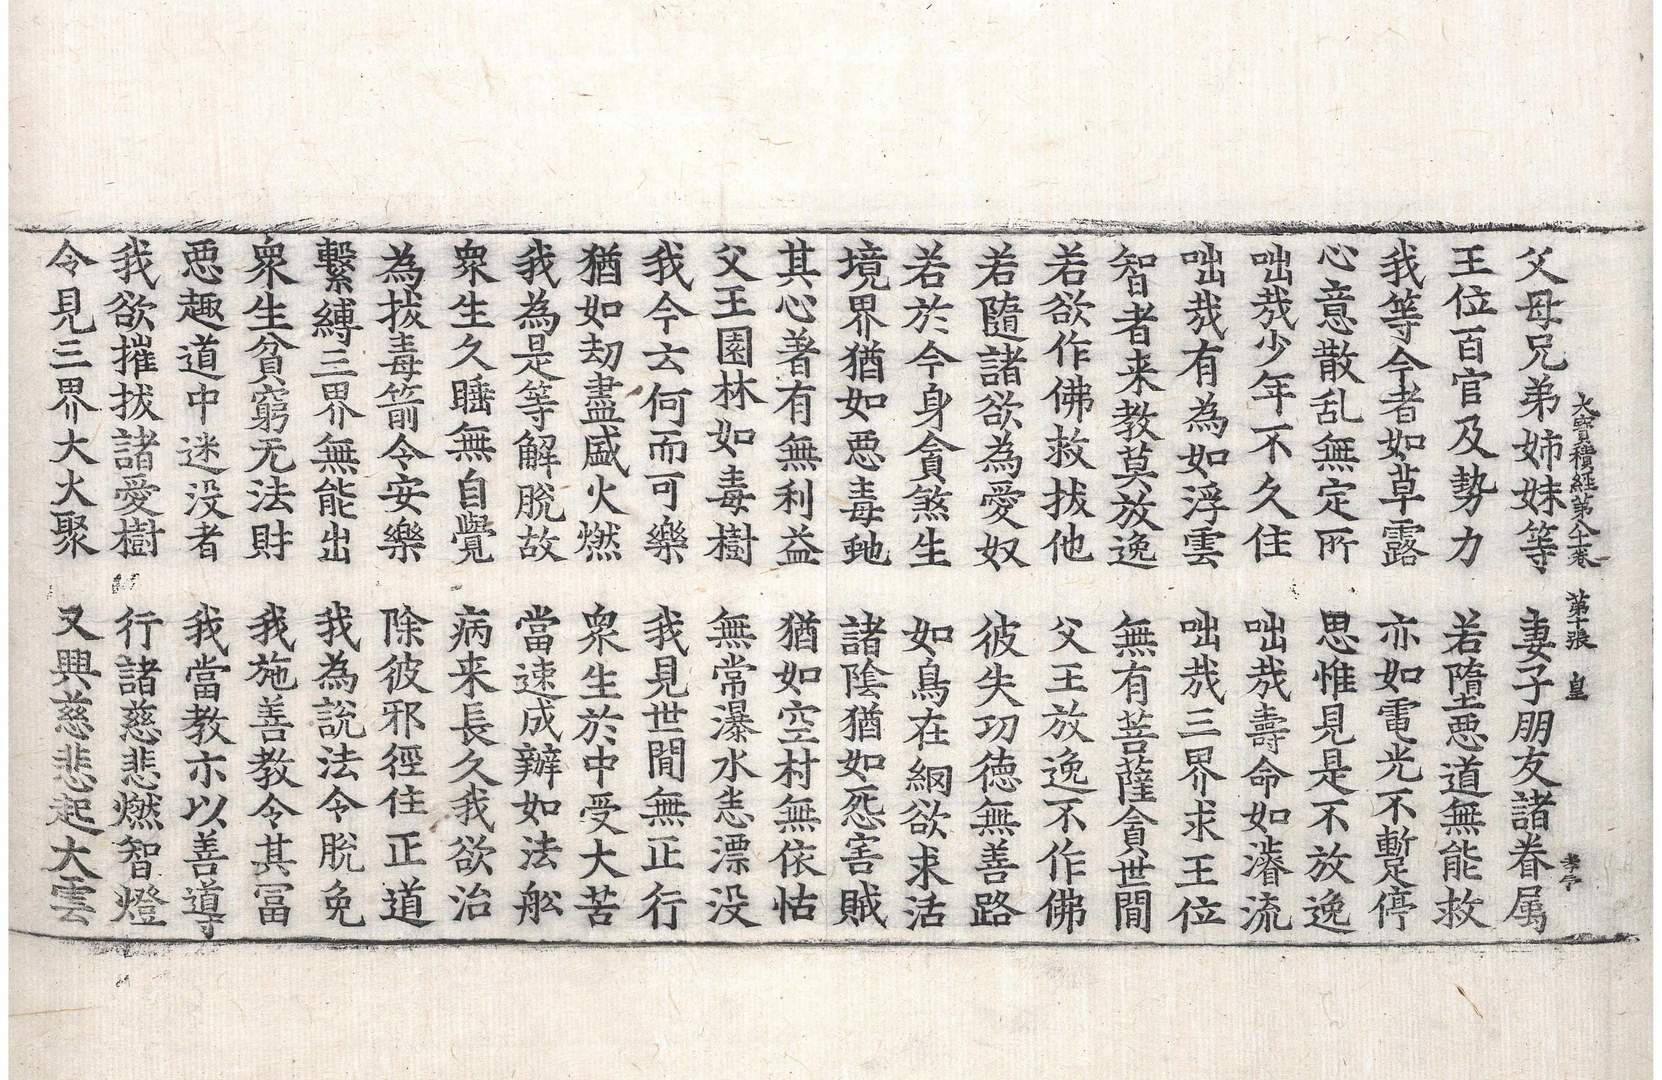 大寶積経第八十卷 第十張 皇
父母兄弟姉妹等 妻子朋友諸眷属
王位百官及勢力 若墮惡道無能救
我等今者如草露 亦如電光不暫停
心意散乱無定所 思惟見是不放逸
咄哉少年不久住 咄哉壽命如濬流
咄哉有為如浮雲 咄哉三界求王位
智者来教莫放逸 無有菩薩貪世間
若欲作佛救拔他 父王放逸不作佛
若隨諸欲為愛奴 彼失功徳無善路
若於今身貪煞生 如鳥在網欲求活
境界猶如惡毒虵 諸陰猶如怨害賊
其心著有無利益 猶如空村無依怙
父王園林如毒樹 無常瀑水恙漂没
我今云何而可樂 我見世間無正行
猶如劫盡盛火燃 衆生於中受大苦
我為是等解脫故 當速成辦如法舩
衆生久睡無自覺 病来長久我欲治
為拔毒箭令安樂 除彼邪徑住正道
繫縛三界無能出 我為說法令脫免
衆生貧窮无法財 我施善教令其冨
惡趣道中迷没者 我當教示以善導
我欲摧拔諸愛樹 行諸慈悲燃智燈
令見三界大火聚 又興慈悲起大雲